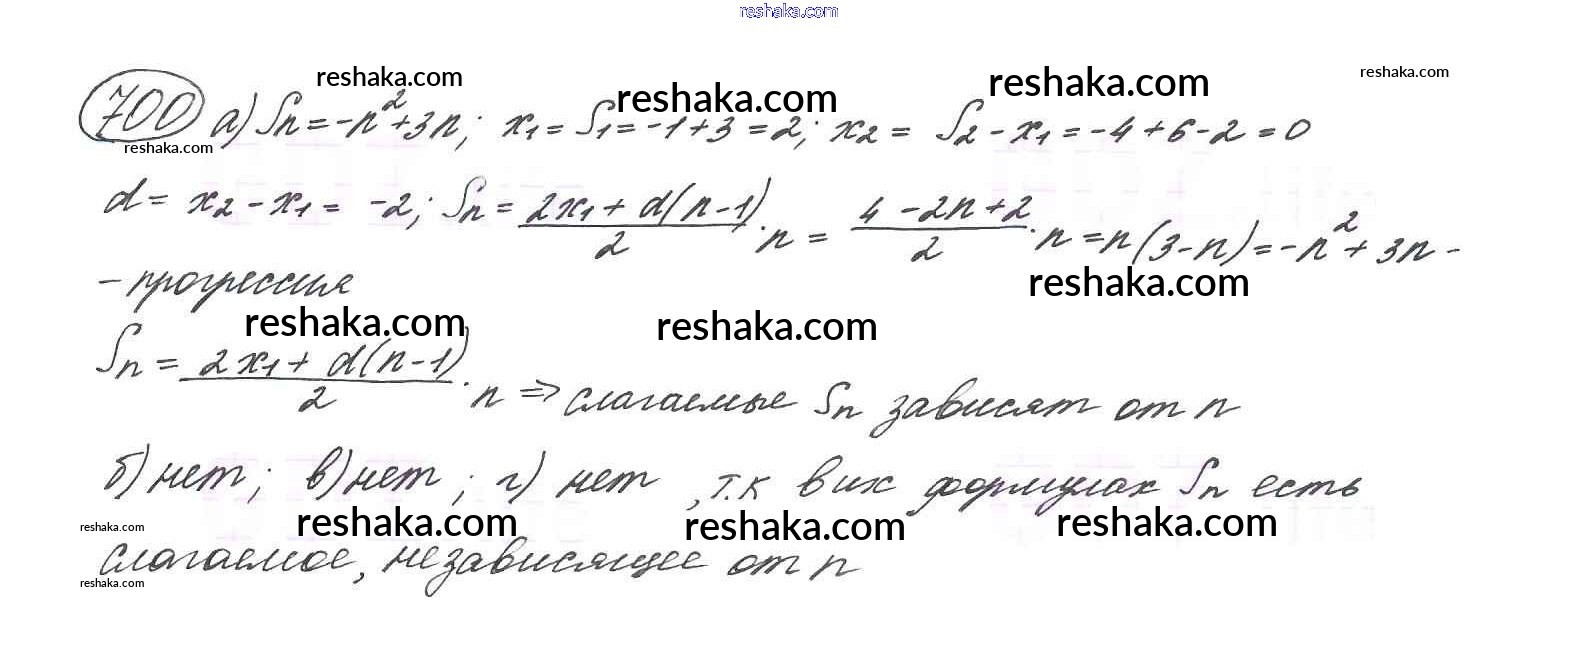 reshaka.com
reshaka.com reshaka.com reshaka.com reshaka.com
700 а) Sn = -n² + 3n; x₁ = S₁ = -1 + 3 = 2; x₂ = S₂ - x₁ = -4 + 6 - 2 = 0
reshaka.com
d = x₂ - x₁ = -2; Sn = (2x₁ + d(n-1))/2 · n = (4 - 2n + 2)/2 · n = n(3-n) = -n² + 3n -
- прогрессия reshaka.com
reshaka.com reshaka.com
Sn = (2x₁ + d(n-1))/2 · n ⇒ слагаемые Sn зависят от n
б) нет; в) нет; г) нет, т.к в их формулах Sn есть
reshaka.com reshaka.com reshaka.com reshaka.com
слагаемое, независящее от n
reshaka.com